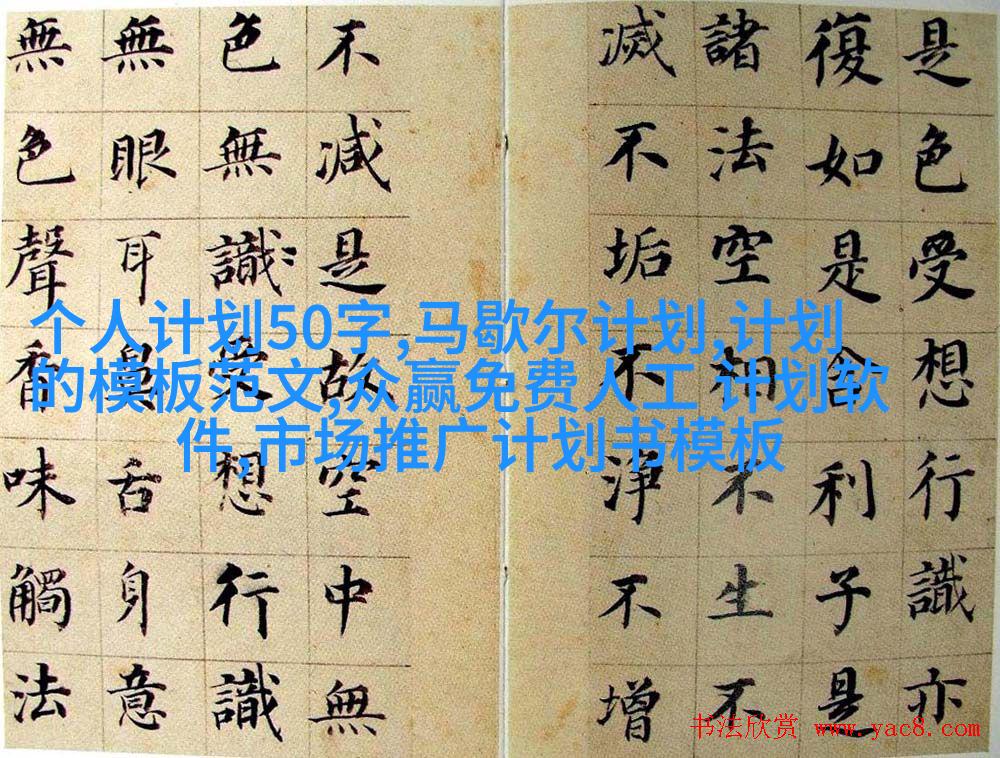 是色受想行識亦
復如是舍利子是
諸法空相不生不
滅不垢不淨不增
不減是故空中無
色無識受想行識
無眼耳鼻舌身意
無色聲香味觸法
个人计划50字,马歇尔计划,计划
的模板范文,众赢免费人工 计划软
件,市场推广计划书模板
书法欣赏 www.yac8.com